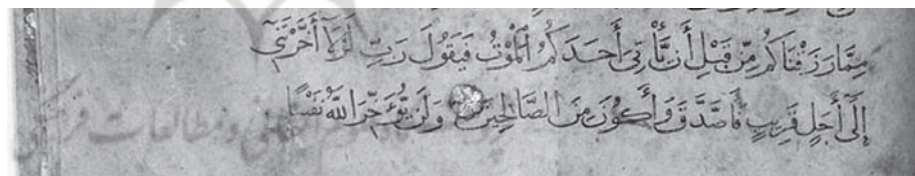 مِمَّا رَزَقْنَاكُم مِّن قَبْلِ أَن يَأْتِىَ أَحَدَكُمُ ٱلْمَوْتُ فَيَقُولَ رَبِّ لَوْلَآ أَخَّرْتَنِىٓ
إِلَىٰٓ أَجَلٍ قَرِيبٍ فَأَصَّدَّقَ وَأَكُونَ مِنَ ٱلصَّالِحِينَ وَلَن يُؤَخِّرَ ٱللَّهُ نَفْسًا
ومطالعات